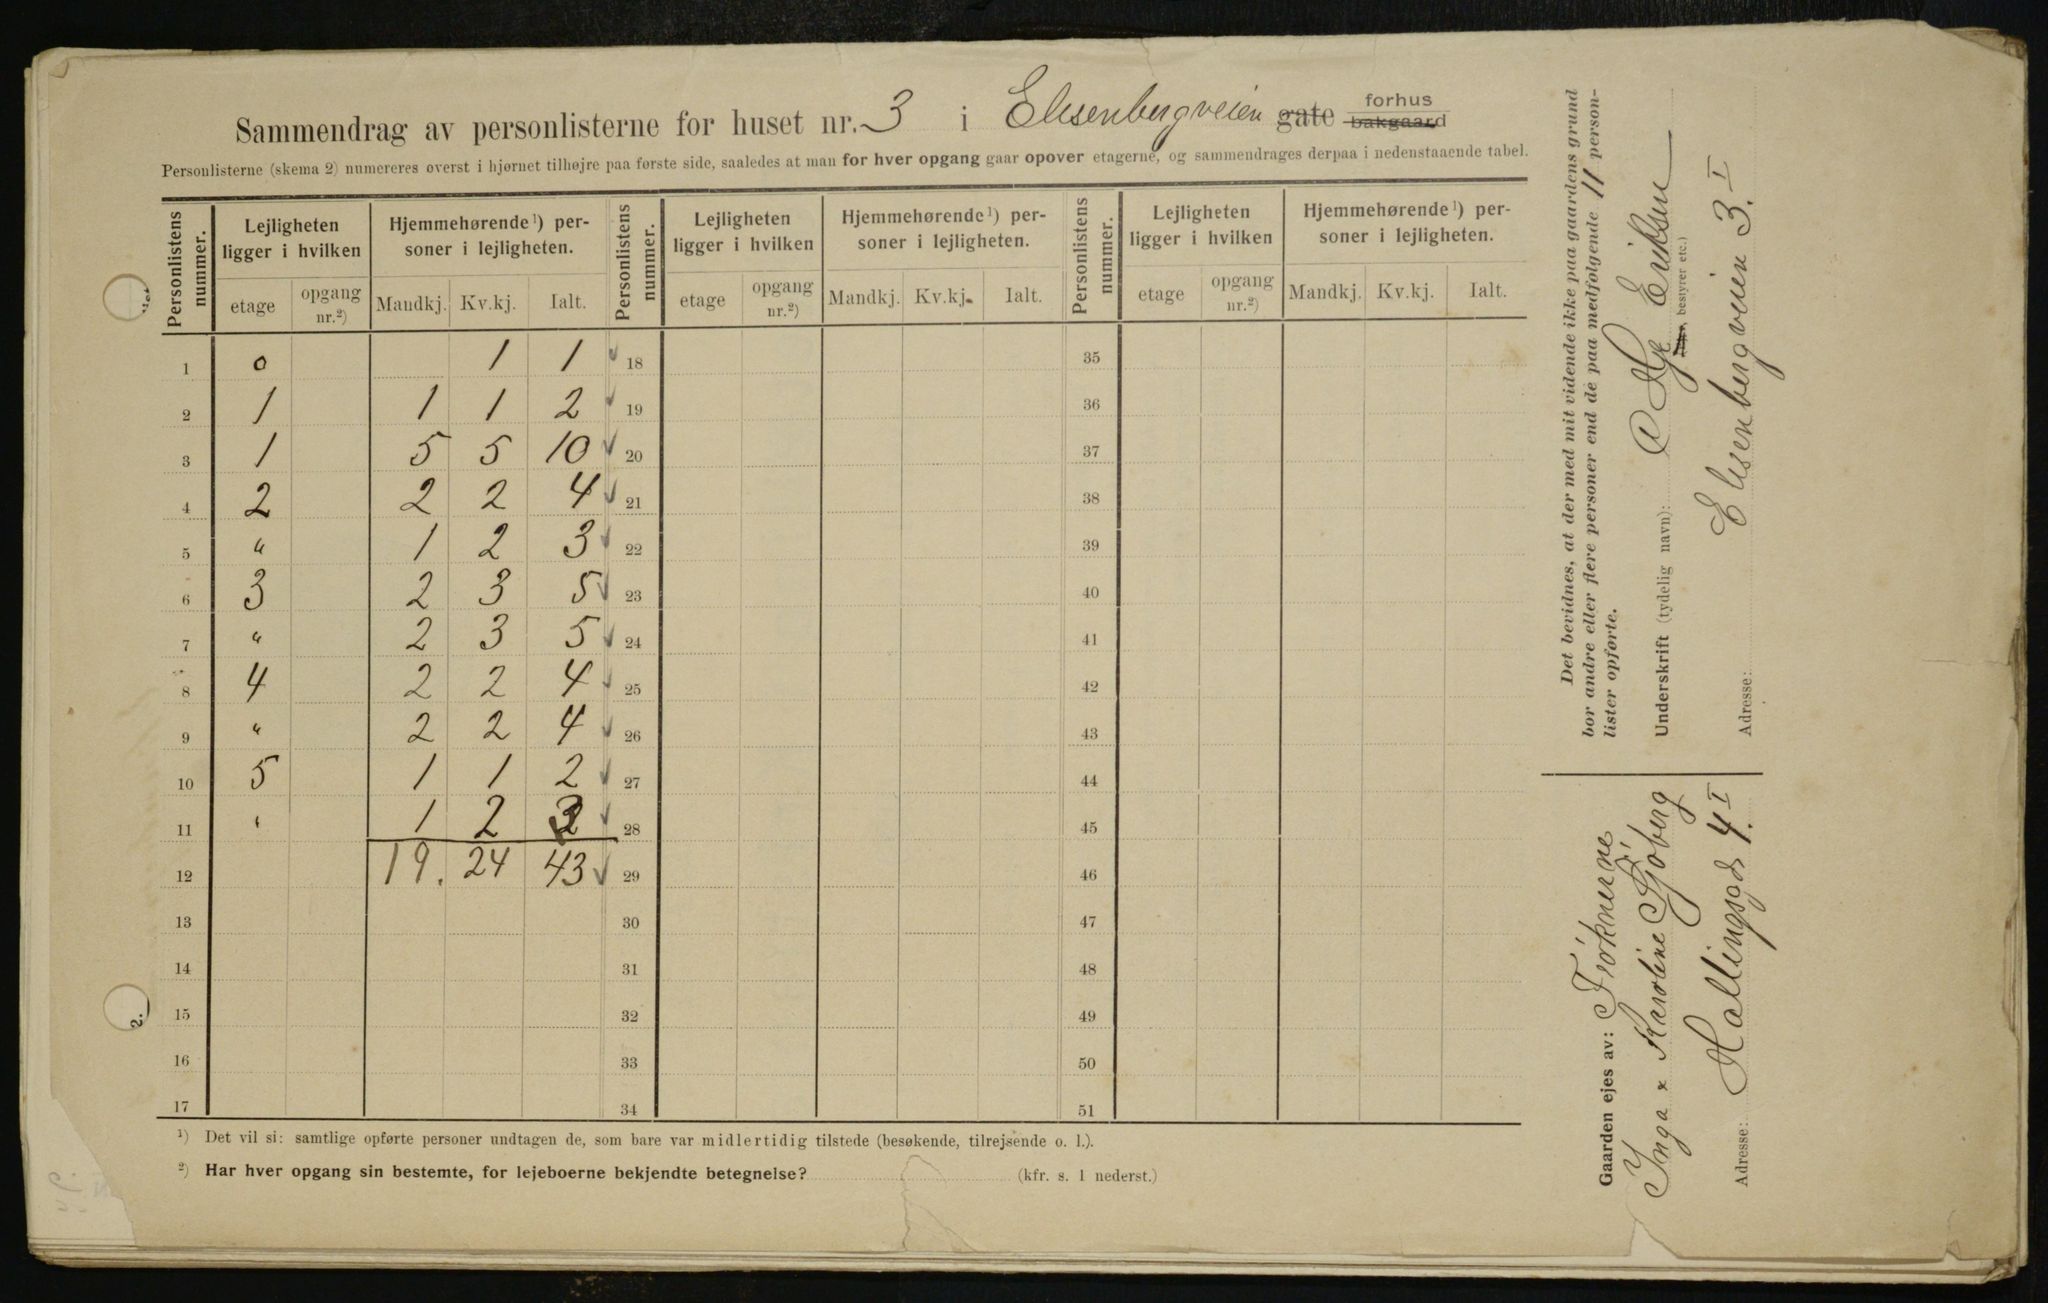 Sammendrag av personlisterne for huset nr. 3 i Elisenbergveien gate forhus bakgaard
Personlisterne (skema 2) numereres øverst i hjørnet tilhøjre paa første side, saaledes at man for hver opgang gaar opover etagerne, og sammendrages derpaa i nedenstaaende tabel.
Personlistens nummer. Lejligheten ligger i hvilken Hjemmehørende ¹) personer i lejligheten. Personlistens nummer. Lejligheten ligger i hvilken Hjemmehørende ¹) personer i lejligheten. Personlistens nummer. Lejligheten ligger i hvilken Hjemmehørende ¹) personer i lejligheten.
etage opgang nr.²) Mandkj. Kv.kj. Ialt. etage opgang nr.²) Mandkj. Kv.kj. Ialt. etage opgang nr.²) Mandkj. Kv.kj. Ialt.
1 0 1 1 18 35
2 1 1 1 2 19 36
3 1 5 5 10 20 37
4 2 2 2 4 21 38
5 " 1 2 3 22 39
6 3 2 3 5 23 40
7 " 2 3 5 24 41
8 4 2 2 4 25 42
9 " 2 2 4 26 43
10 5 1 1 2 27 44
11 " 1 2 3 28 45
12 19. 24 43 29 46
13 30 47
14 31 48
15 32 49
16 33 50
17 34 51
¹) Det vil si: samtlige opførte personer undtagen de, som bare var midlertidig tilstede (besøkende, tilrejsende o. l.).
²) Har hver opgang sin bestemte, for lejeboerne bekjendte betegnelse? (kfr. s. 1 nederst.)
Det bevidnes, at der med mit vidende ikke paa gaardens grund
bor andre eller flere personer end de paa medfølgende 11 person-
lister opførte.
Underskrift (tydelig navn): Eriksen
bestyrer etc.)
Adresse: Elisenbergveien 3. I
Gaarden ejes av: Frøknerne
Inga & Karoline Sjøberg
Adresse: Hallingsgd. 4. I
2.